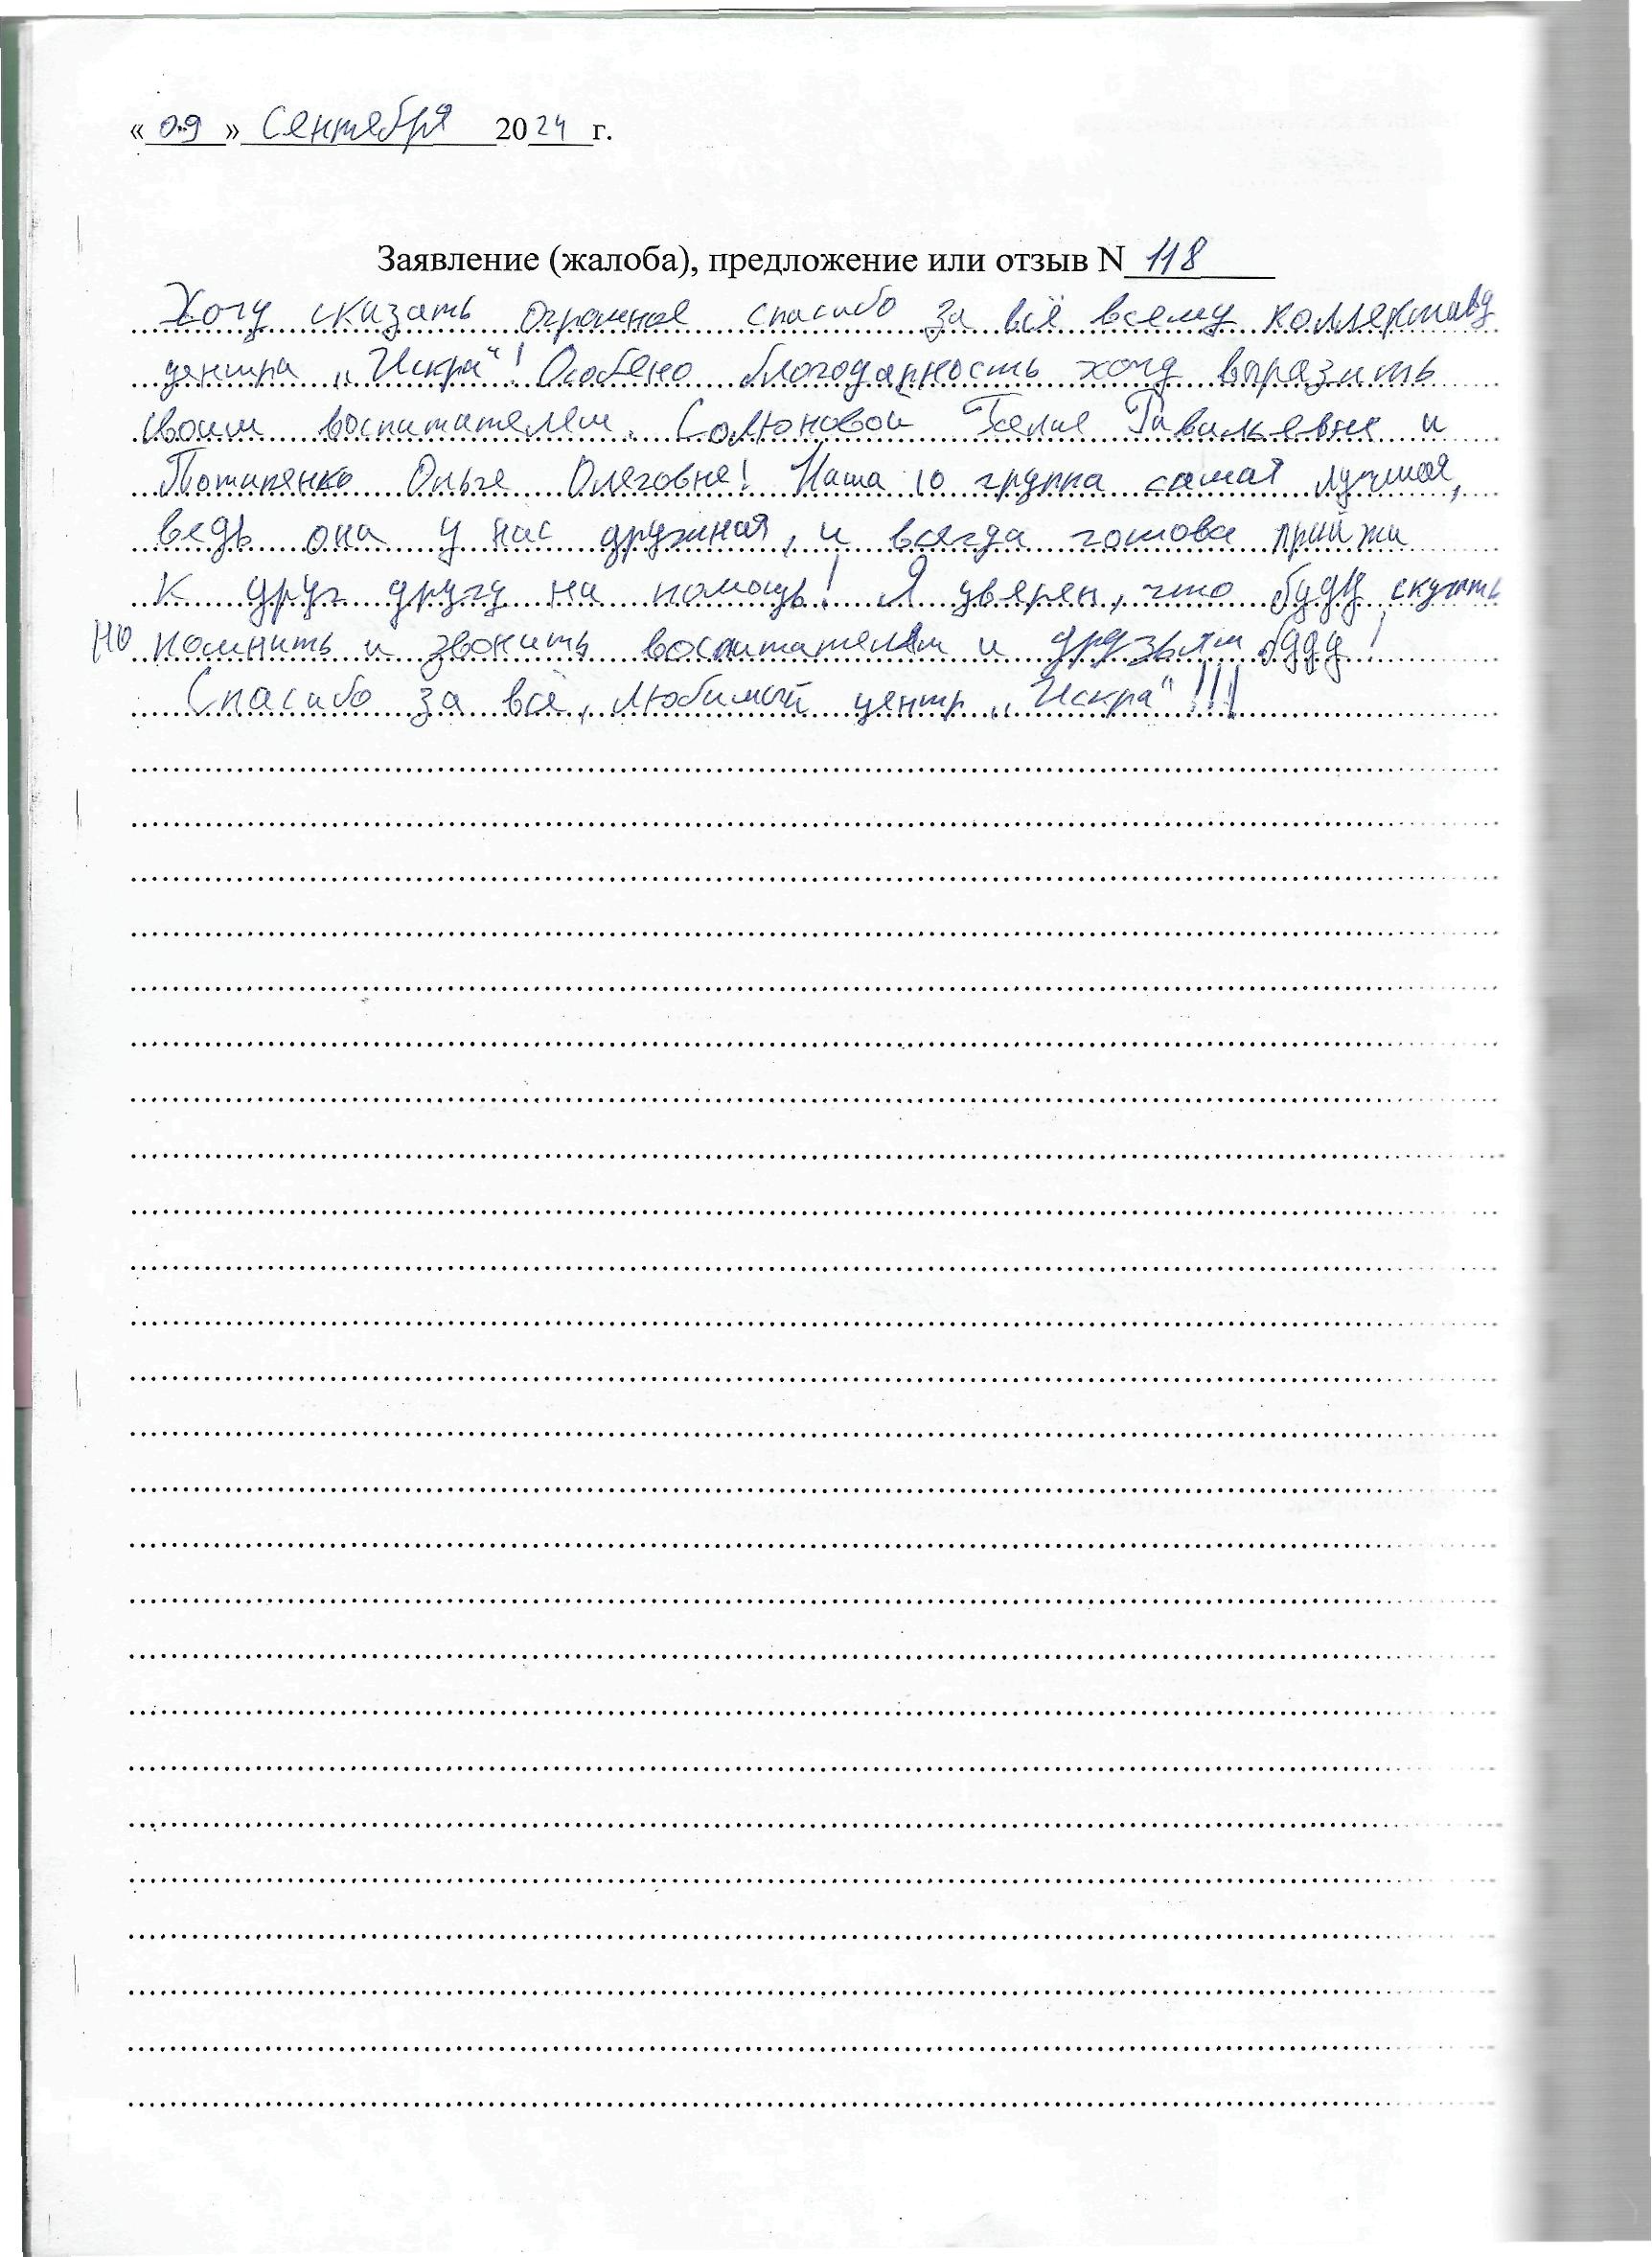 « 09 » Сентября 2024 г.
Заявление (жалоба), предложение или отзыв N 118
Хочу сказать огромное спасибо за всё всему коллективу
центра „Искра“! Особено благодарность хочу выразить
своим воспитателям. Солюновой Гелие Равильевне и
Потапенко Ольге Олеговне! Наша 10 группа самая лучшая,
ведь она у нас дружная, и всегда готова прийти
к друг другу на помощь! Я уверен, что буду скучать
но помнить и звонить воспитателям и друзьям буду!
Спасибо за всё, любимый центр „Искра“!!!